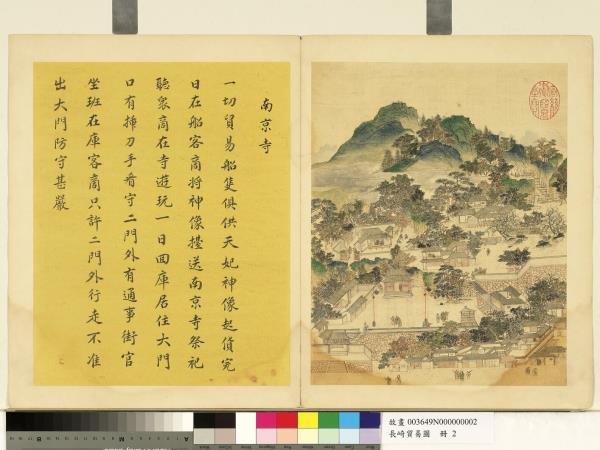 南京寺
一切貿易船隻俱供天妃神像起貨完
日在船客商將神像擡送南京寺祭祀
聽眾商在寺遊玩一日回庫居住大門
口有揷刀手看守二門外有通事街官
坐班在庫客商只許二門外行走不准
出大門防守甚嚴
故畫 003649N000000002
長崎貿易圖 冊 2